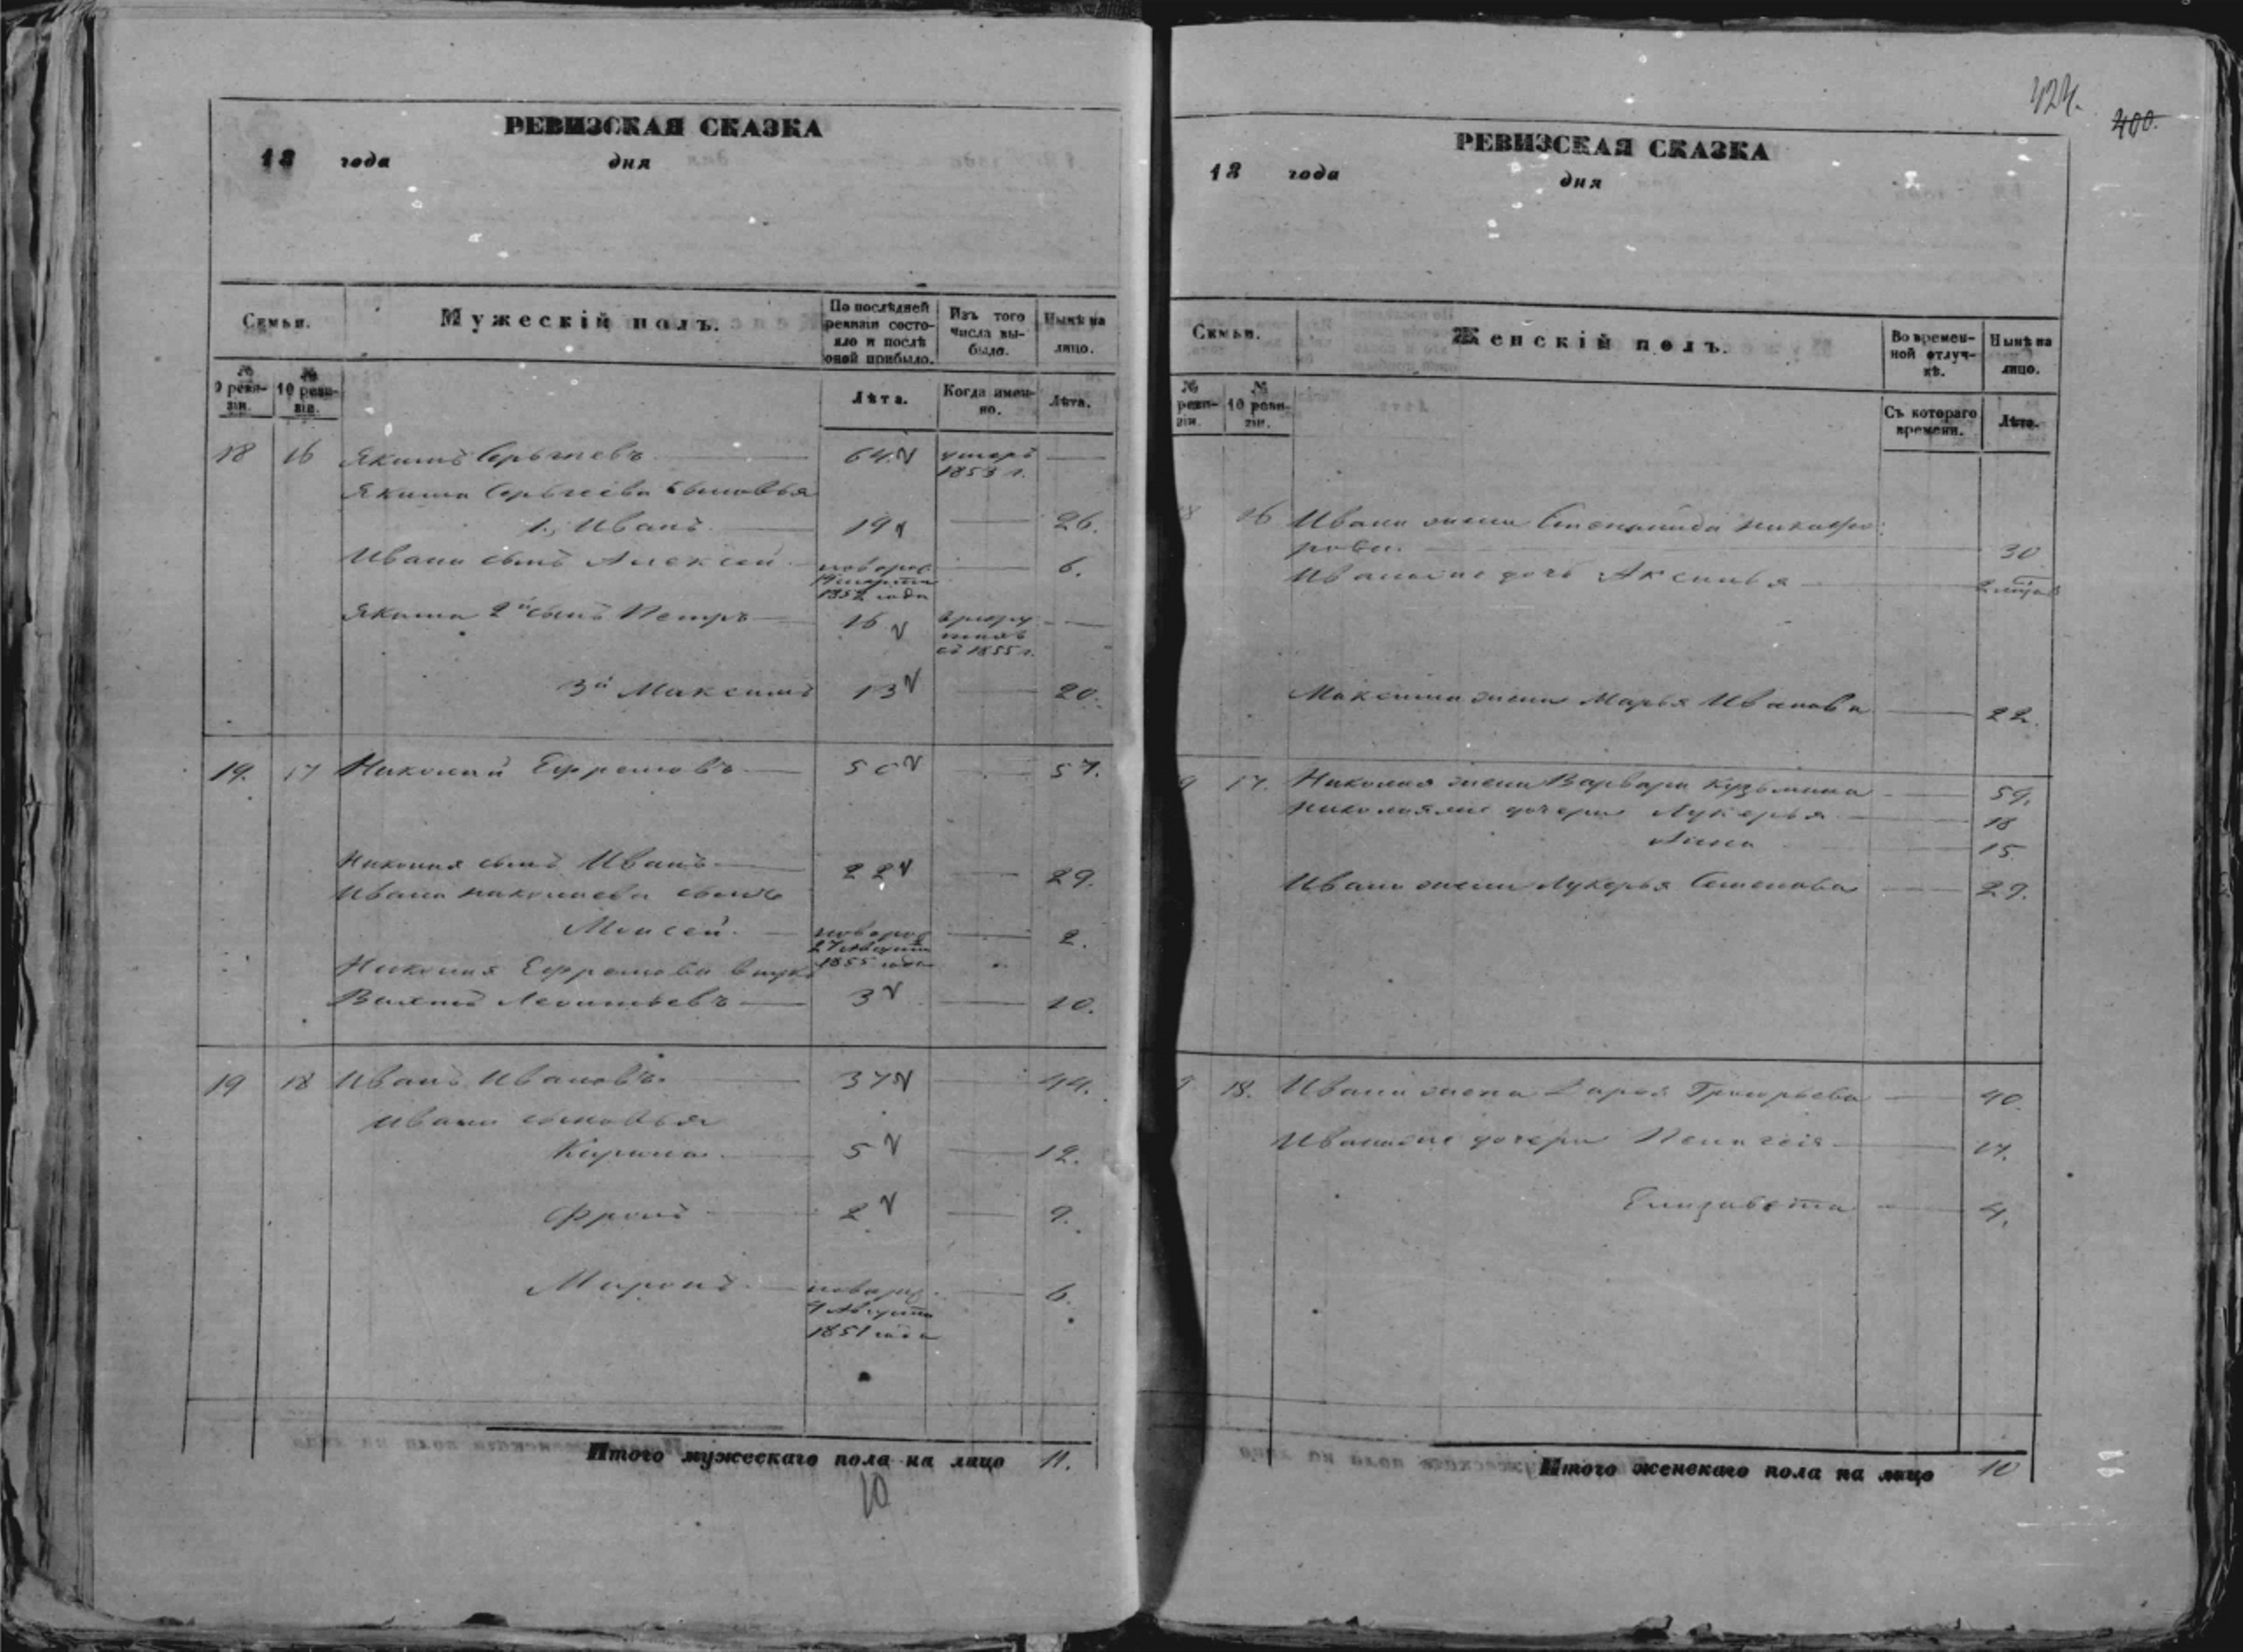 424.
400.
РЕВИЗСКАЯ СКАЗКА
18 года дня
Семьи.
Мужескій полъ.
По послѣдней ревизіи состояло и послѣ оной прибыло.
Изъ того числа выбыло.
Нынѣ на лицо.
№ 9 ревизіи.
№ 10 ревизіи.
Лѣта.
Когда именно.
Лѣта.
18 16 Якимъ Сергѣевъ 64 умеръ
1853 г.
Якима Сергѣева сыновья
1. Иванъ 19 26.
Ивана сынъ Алексей новорог. 6.
19 марта
1852 года
Якима 2й сынъ Петръ 16 въ рекру
съ 1855 г.
3й Максимъ 13 20.
19. 17 Николай Ефремовъ 50 57.
Николая сынъ Иванъ 22 29.
Ивана Николаева сынъ
Моисей. новорог 2.
27 Августа
1855 года
Николая Ефремова внукъ
Леонтьевъ 3 10.
19 18 Иванъ Ивановъ. 37 44.
Ивана сыновья
5 12.
Фролъ 2 9.
Миронъ новорог. 6.
4 Августа
1851 года
Итого мужескаго пола на лицо 11.
10
РЕВИЗСКАЯ СКАЗКА
18 года дня
Семьи.
Женскій полъ.
Во временной отлучкѣ.
Нынѣ на лицо.
№ ревизіи.
№ 10 ревизіи.
Съ котораго времени.
Лѣта.
8 16 Ивана жена Степанида Никифо
рова. 30
Иванова же дочь Аксинья
Максима жена Марья Иванова 22.
9 17. Николая жена Варвара Кузьмина 59.
Николая же дочери Лукерья 18
Анна 15.
Ивана жена Лукерья Семенова 29.
9 18. Ивана жена Дарья Григорьева 40.
Ивана же дочери Пелагея 17.
Елизавета 4.
Итого женскаго пола на лицо 10